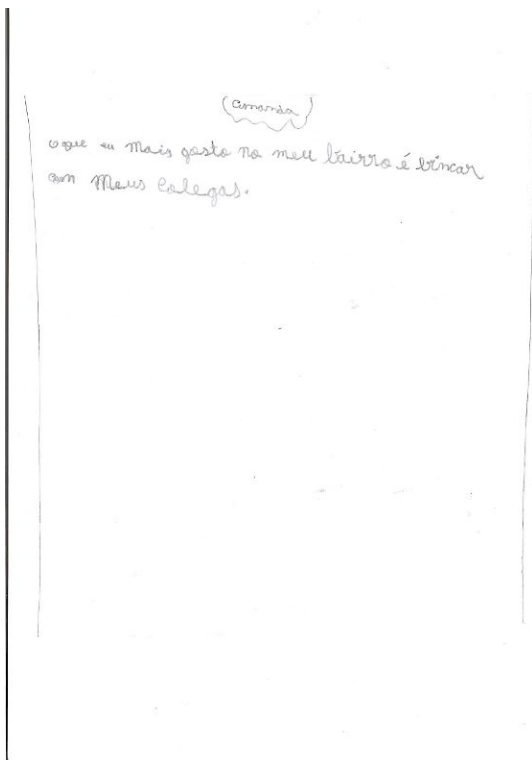 Amanda
o que eu mais gosto no meu bairro é brincar
com Meus Colegas.